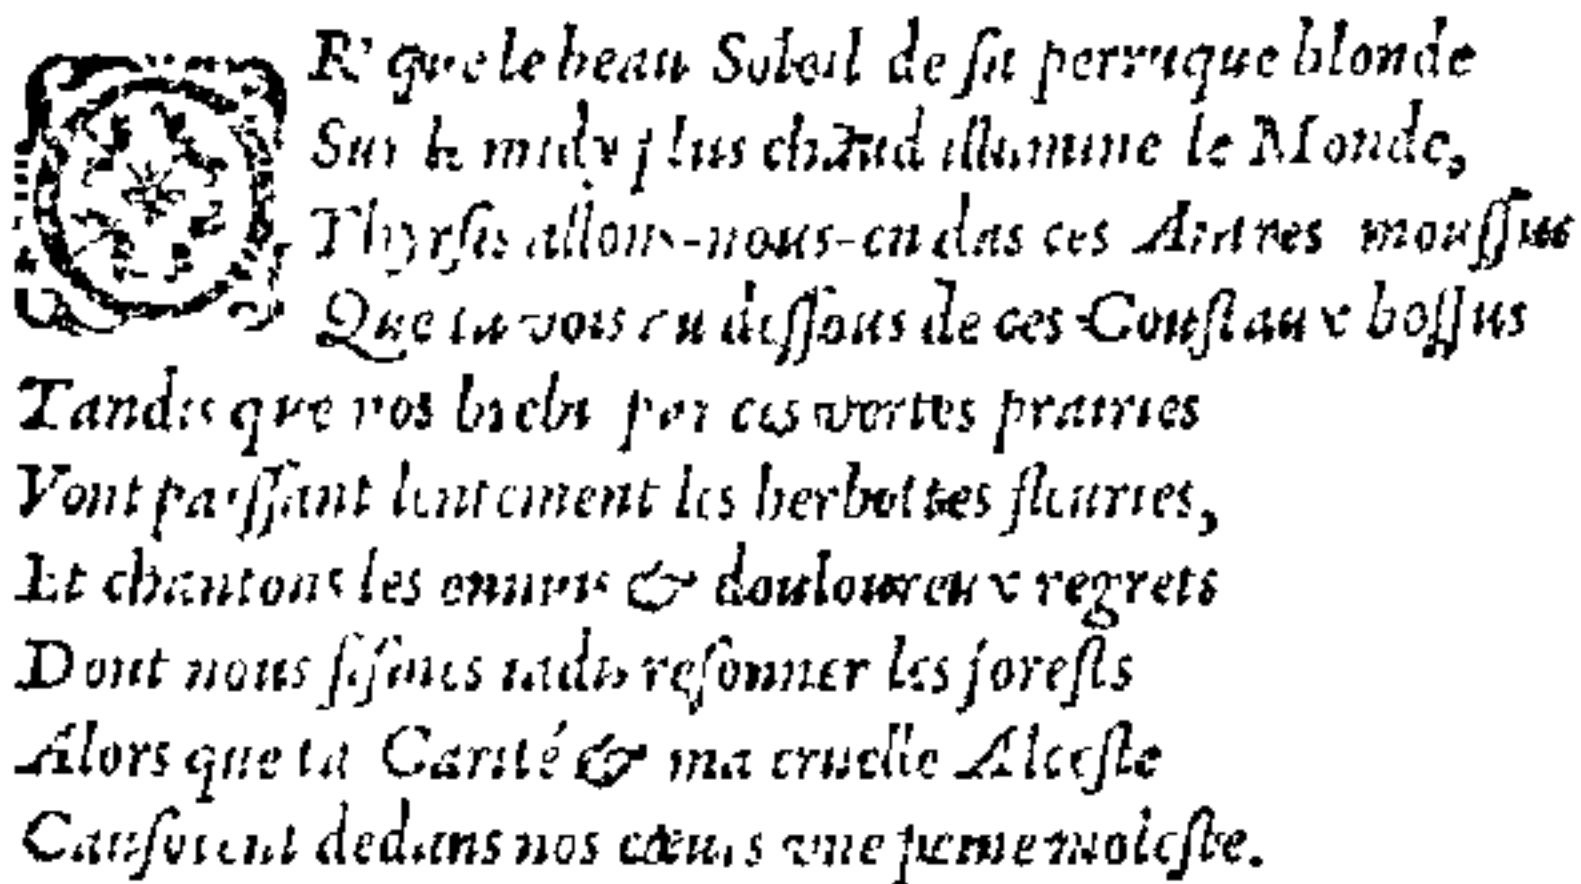 OR' que le beau Soleil de sa perruque blonde
Sur le midy plus chaud illumine le Monde,
Thyrsis allons-nous-en dãs ces Antres moussus
Que tu vois en dessous de ces Coustaux bossus
Tandis que nos brebis par ces vertes prairies
Vont paissant lentement les herbettes fleuries,
Et chantons les ennuis & douloureux regrets
Dont nous fisines iadis resonner les forests
Alors que ta Carité & ma cruelle Alceste
Causoient dedans nos cœurs vne peine moleste.